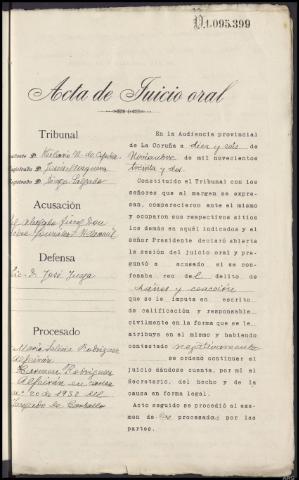 1.095.399
Acta de Juicio oral
Tribunal
Presidente D.
Magistrado D.
Magistrado D.
Acusación
Defensa
Lic. D. José
Procesado
María Rodríguez
Rodríguez
de 1932 del
Juzgado de Carballo
En la Audiencia provincial
de La Coruña a diez y seis de
Noviembre de mil novecientos
treinta y dos.
Constituido el Tribunal con los
señores que al margen se expre-
san, comparecieron ante el mismo
y ocuparon sus respectivos sitios
los demás en aquél indicados y el
señor Presidente declaró abierta
la sesión del juicio oral y pre-
guntó a acusado si se con-
fesaba reo del delito de
daños y coacción
que se le imputa en escrito
de calificación y responsable
civilmente en la forma que se le
atribuya en el mismo y habiendo
contestado negativamente
se ordenó continuar el
juicio dándose cuenta, por mi el
Secretario, del hecho y de la
causa en forma legal.
Acto seguido se procedió al exa-
men de los procesados por las
partes.